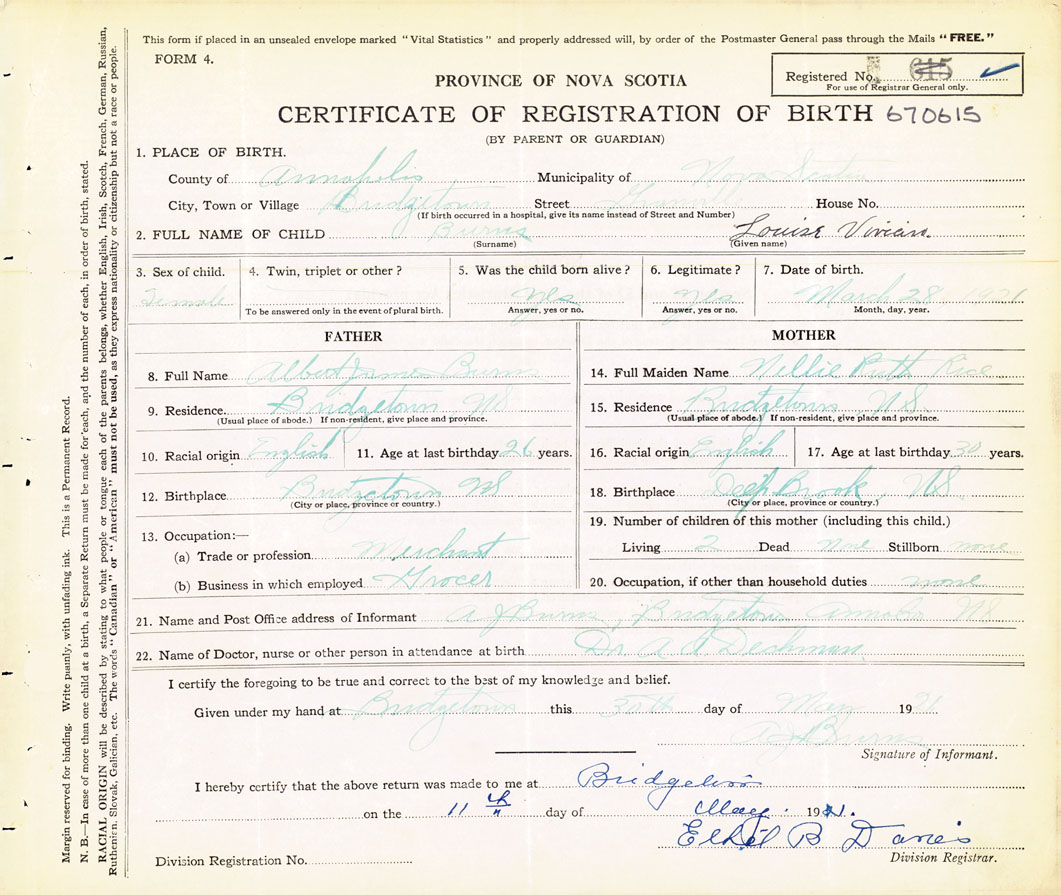 This form if placed in an unsealed envelope marked "Vital Statistics" and properly addressed will, by order of the Postmaster General pass through the Mails "FREE."
FORM 4.
Registered No. 615
For use of Registrar General only.
PROVINCE OF NOVA SCOTIA
CERTIFICATE OF REGISTRATION OF BIRTH 670615
(BY PARENT OR GUARDIAN)
1. PLACE OF BIRTH.
County of Annapolis Municipality of Nova Scotia
City, Town or Village Bridgetown Street Granville House No.
(If birth occurred in a hospital, give its name instead of Street and Number)
2. FULL NAME OF CHILD Burns Louise Vivian.
(Surname) (Given name)
3. Sex of child. 4. Twin, triplet or other? 5. Was the child born alive? 6. Legitimate? 7. Date of birth.
Female yes yes March 28
To be answered only in the event of plural birth. Answer, yes or no. Answer, yes or no. Month, day, year.
FATHER
8. Full Name Albert James Burns
9. Residence. Bridgetown NS
(Usual place of abode.) If non-resident, give place and province.
10. Racial origin English 11. Age at last birthday 26 years.
12. Birthplace Bridgetown NS
(City or place, province or country.)
13. Occupation:—
(a) Trade or profession Merchant
(b) Business in which employed Grocer
MOTHER
14. Full Maiden Name Nellie Ruth Rice
15. Residence Bridgetown, N.S.
(Usual place of abode.) If non-resident, give place and province.
16. Racial origin English 17. Age at last birthday 30 years.
18. Birthplace Deep Brook, NS
(City or place, province or country.)
19. Number of children of this mother (including this child.)
Living 2 Dead none Stillborn none
20. Occupation, if other than household duties none
21. Name and Post Office address of Informant A J Burns, Bridgetown NS
22. Name of Doctor, nurse or other person in attendance at birth Dr. A A Dechman
I certify the foregoing to be true and correct to the best of my knowledge and belief.
Given under my hand at Bridgetown this 30th day of 1921
A J Burns
Signature of Informant.
I hereby certify that the above return was made to me at Bridgetown
on the 11th day of May. 19
Ethel B Davies
Division Registrar.
Division Registration No.
Margin reserved for binding. Write plainly, with unfading ink. This is a Permanent Record.
N. B.—In case of more than one child at a birth, a Separate Return must be made for each, and the number of each, in order of birth, stated.
RACIAL ORIGIN will be described by stating to what people or tongue each of the parents belongs, whether English, Irish, Scotch, French, German, Russian,
Ruthenian, Slovak, Galician, etc. The words "Canadian" or "American" must not be used, as they express nationality or citizenship but not a race or people.